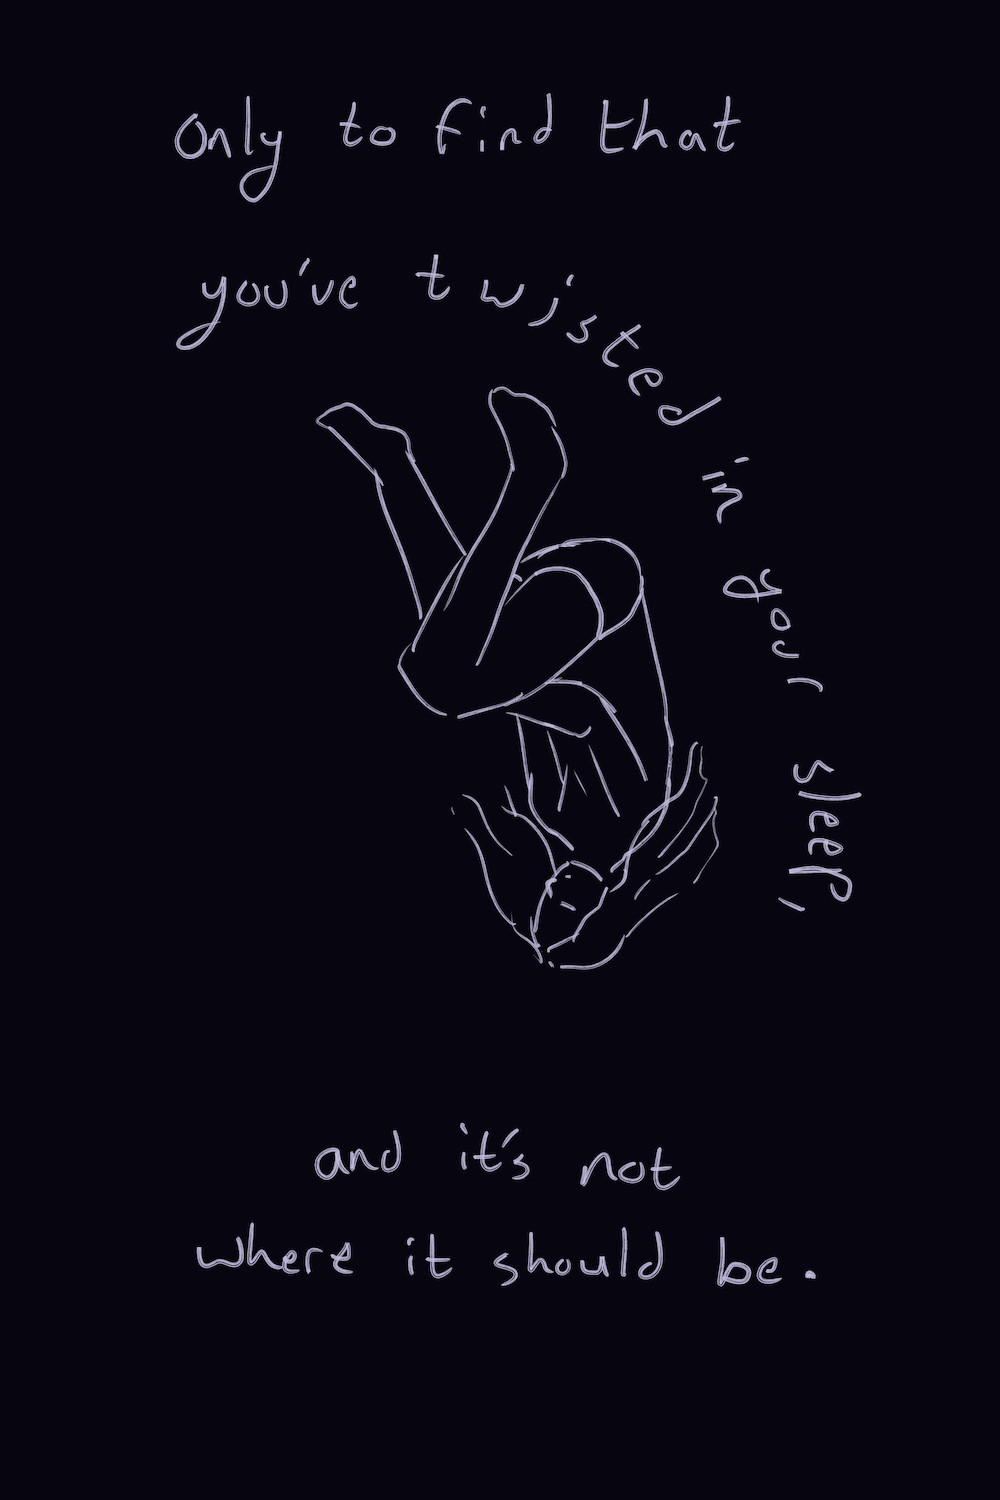 Only to find that
you've twisted in your sleep,
and it's not
where it should be.